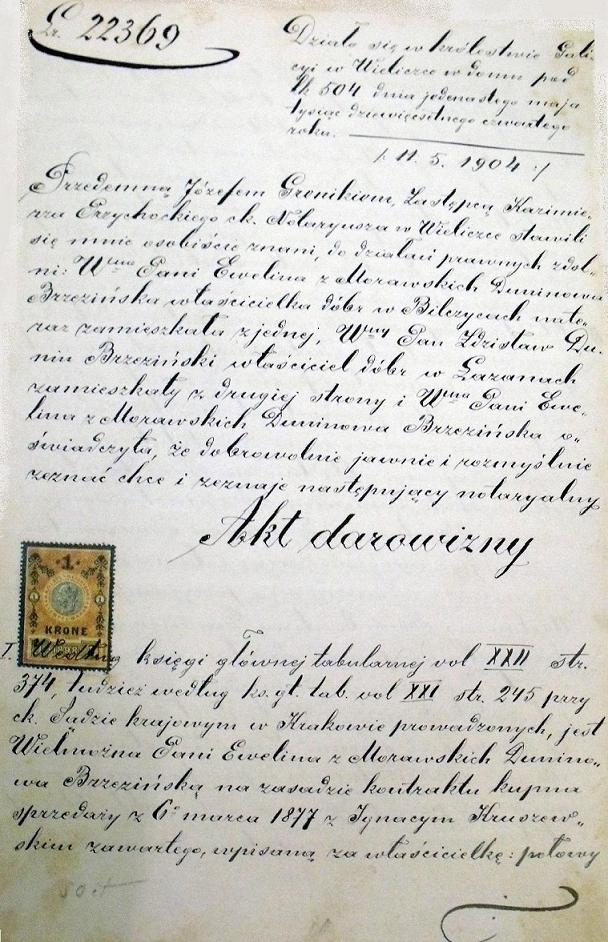 Lr. 22369
Działo się w królestwie Gali-
cyi w Wieliczce w domu pod
lk. 504 dnia jedenastego maja
tysiąc dziewięćsetnego czwartego
roku.
/: 11. 5. 1904 :/
Przedemną Józefem Gronikiem, Zastępcą Kazimie-
rza Przychockiego ck. Notaryusza w Wieliczce stawili
się mnie osobiście znani, do działań prawnych zdol-
ni: Wna Pani Ewelina z Morawskich Duninowa
Brzezińska właścicielka dóbr w Bilczycach nate-
raz zamieszkała z jednej, Wny Pan Zdzisław Du-
nin Brzeziński właściciel dóbr w Łazanach
zamieszkały z drugiej strony i Wna Pani Ewe-
lina z Morawskich Duninowa Brzezińska o-
świadczyła, że dobrowolnie jawnie i rozmyślnie
zeznać chce i zeznaje następujący notaryalny
Akt darowizny
1
KRONE
I. Według księgi głównej tabularnej vol XXII str.
374, tudzież według ks. gł. tab. vol XXI str. 245 przy
ck. Sądzie krajowym w Krakowie prowadzonych, jest
Wielmożna Pani Ewelina z Morawskich Dunino-
wa Brzezińska na zasadzie kontraktu kupna
sprzedaży z 6o marca 1877 z Ignacym Kruszew-
skim zawartego, wpisaną za właścicielkę: połowy